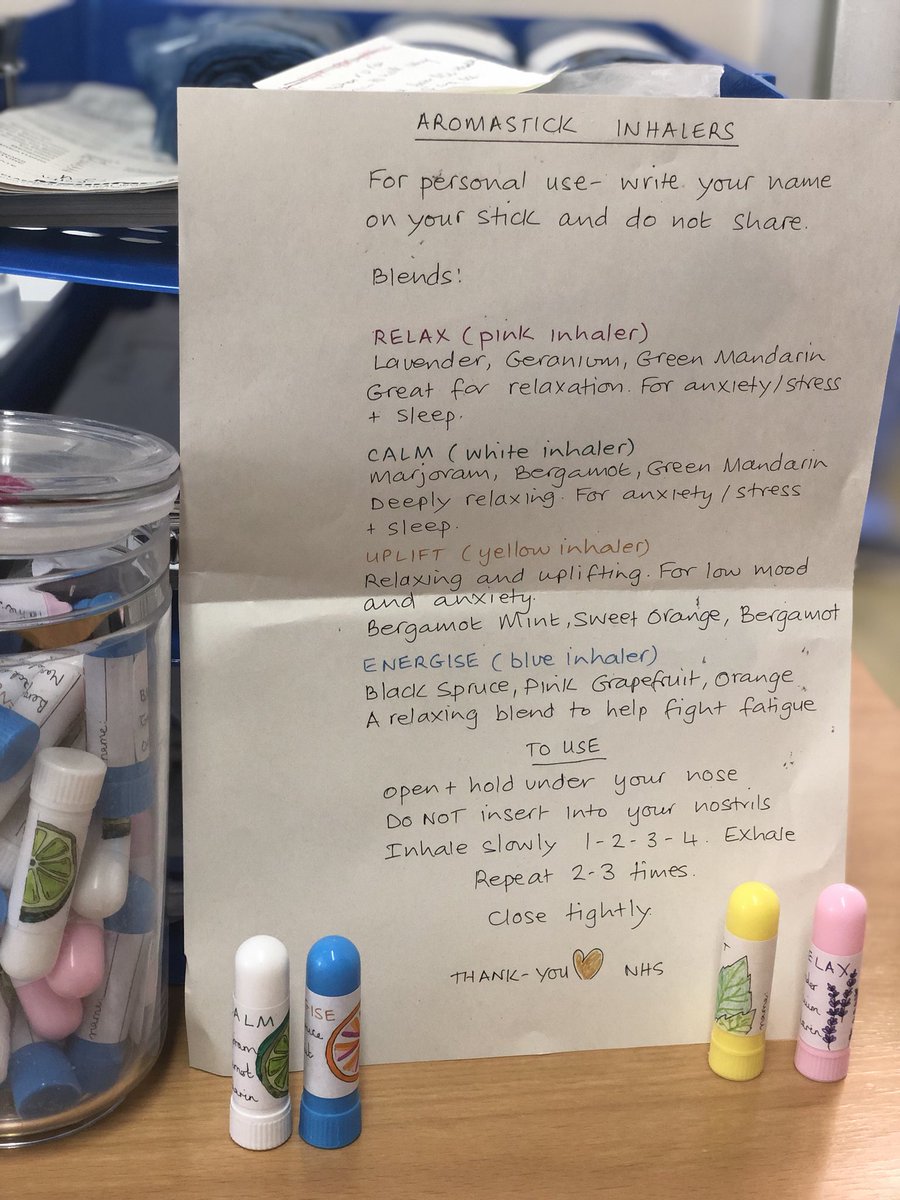 AROMASTICK INHALERS
For personal use- write your name
on your stick and do not share.
Blends!
RELAX (pink inhaler)
Lavender, Geranium, Green Mandarin
Great for relaxation. For anxiety/stress
+ sleep.
CALM (white inhaler)
Marjoram, Bergamot, Green Mandarin
Deeply relaxing. For anxiety/stress
+ sleep.
UPLIFT (yellow inhaler)
Relaxing and uplifting. For low mood
and anxiety.
Bergamot Mint, Sweet Orange, Bergamot
ENERGISE (blue inhaler)
Black Spruce, Pink Grapefruit, Orange
A relaxing blend to help fight fatigue
TO USE
open + hold under your nose
Do NOT insert into your nostrils
Inhale slowly 1-2-3-4. Exhale
Repeat 2-3 times.
Close tightly.
THANK-YOU NHS
ALM
arin
GISE
name:
ELAX
arin
name:
name: